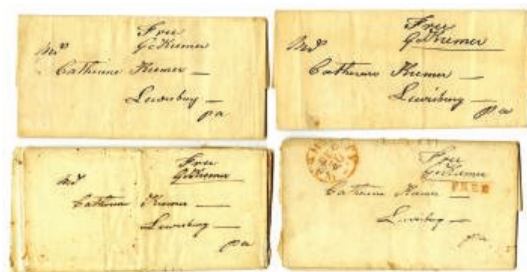 Free
G. Kremer
Mrs
Catherine Kremer
Lewisburg
Pa
Free
G. Kremer
Mrs
Catherine Kremer
Lewisburg
Pa
Free
G. Kremer
Mrs
Catherine Kremer
Lewisburg
Pa
Free
G. Kremer
FREE
Catherine Kremer
Lewisburg
Pa